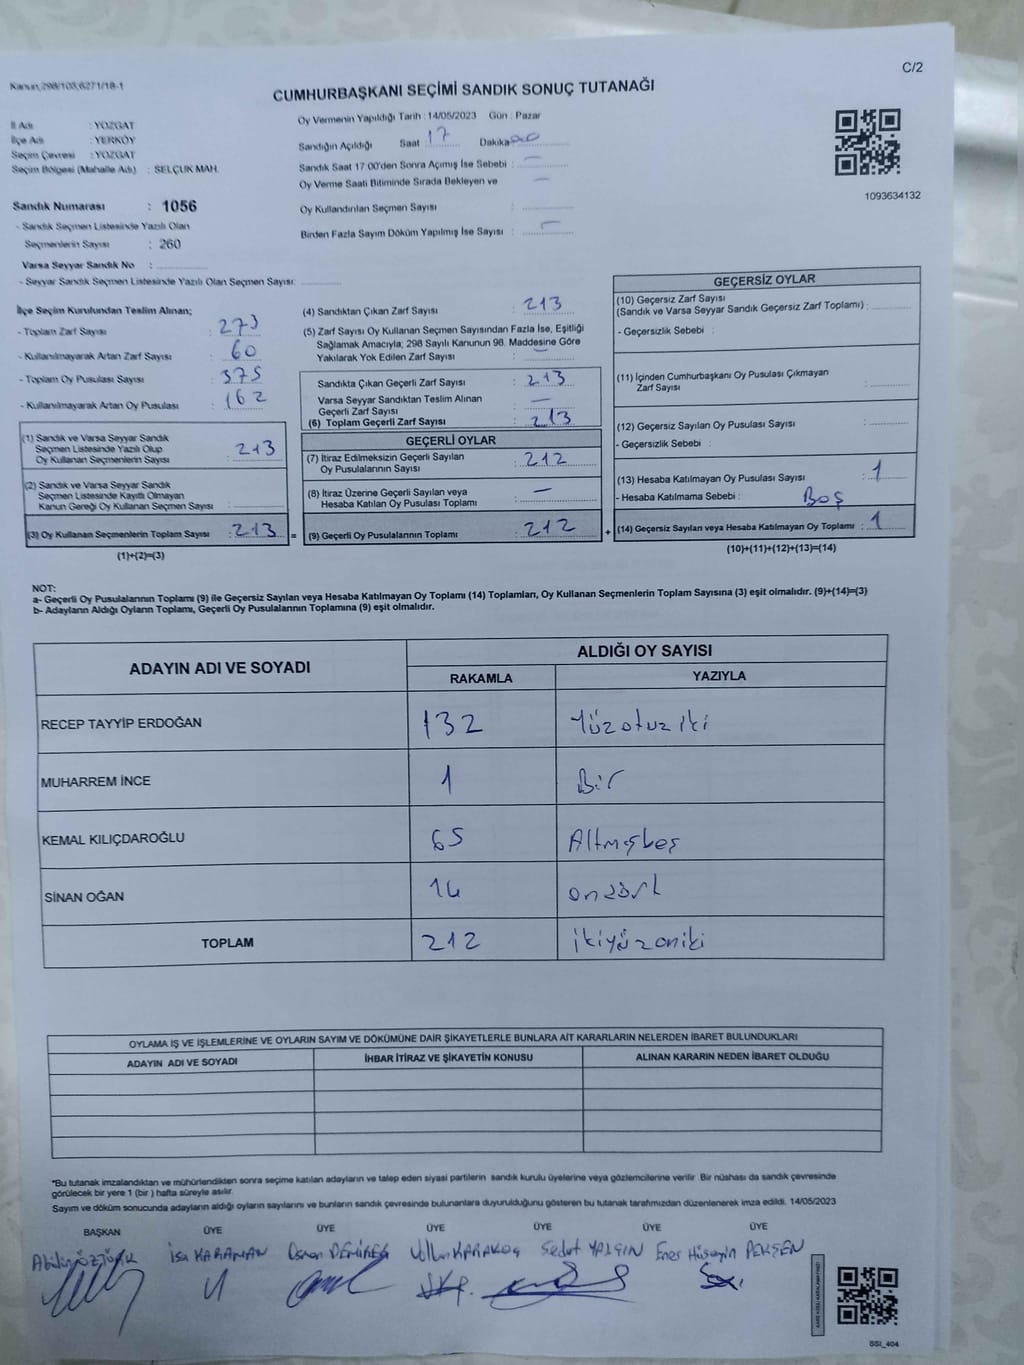 C/2
Kanun,298/103,6271/18-1
CUMHURBAŞKANI SEÇİMİ SANDIK SONUÇ TUTANAĞI
İl Adı : YOZGAT
İlçe Adı : YERKÖY
Seçim Çevresi : YOZGAT
Seçim Bölgesi (Mahalle Adı) : SELÇUK MAH.
Sandık Numarası : 1056
- Sandık Seçmen Listesinde Yazılı Olan
Seçmenlerin Sayısı : 260
Varsa Seyyar Sandık No :
- Seyyar Sandık Seçmen Listesinde Yazılı Olan Seçmen Sayısı:
Oy Vermenin Yapıldığı Tarih : 14/05/2023 Gün : Pazar
Sandığın Açıldığı Saat : 17 Dakika : 00
Sandık Saat 17:00'den Sonra Açımış İse Sebebi : —
Oy Verme Saati Bitiminde Sırada Bekleyen ve —
Oy Kullandırılan Seçmen Sayısı :
Birden Fazla Sayım Döküm Yapılmış İse Sayısı : —
1093634132
İlçe Seçim Kurulundan Teslim Alınan;
- Toplam Zarf Sayısı : 273
- Kullanılmayarak Artan Zarf Sayısı : 60
- Toplam Oy Pusulası Sayısı : 375
- Kullanılmayarak Artan Oy Pusulası : 162
(1) Sandık ve Varsa Seyyar Sandık
Seçmen Listesinde Yazılı Olup
Oy Kullanan Seçmenlerin Sayısı : 213
(2) Sandık ve Varsa Seyyar Sandık
Seçmen Listesinde Kayıtlı Olmayan
Kanun Gereği Oy Kullanan Seçmen Sayısı :
(3) Oy Kullanan Seçmenlerin Toplam Sayısı : 213 =
(1)+(2)=(3)
(4) Sandıktan Çıkan Zarf Sayısı : 213
(5) Zarf Sayısı Oy Kullanan Seçmen Sayısından Fazla İse, Eşitliği
Sağlamak Amacıyla; 298 Sayılı Kanunun 98. Maddesine Göre
Yakılarak Yok Edilen Zarf Sayısı : —
Sandıkta Çıkan Geçerli Zarf Sayısı : 213
Varsa Seyyar Sandıktan Teslim Alınan
Geçerli Zarf Sayısı : —
(6) Toplam Geçerli Zarf Sayısı : 213
GEÇERLİ OYLAR
(7) İtiraz Edilmeksizin Geçerli Sayılan
Oy Pusulalarının Sayısı : 212
(8) İtiraz Üzerine Geçerli Sayılan veya
Hesaba Katılan Oy Pusulası Toplamı : —
(9) Geçerli Oy Pusulalarının Toplamı : 212 +
GEÇERSİZ OYLAR
(10) Geçersiz Zarf Sayısı
(Sandık ve Varsa Seyyar Sandık Geçersiz Zarf Toplamı) :
- Geçersizlik Sebebi :
(11) İçinden Cumhurbaşkanı Oy Pusulası Çıkmayan
Zarf Sayısı :
(12) Geçersiz Sayılan Oy Pusulası Sayısı :
- Geçersizlik Sebebi :
(13) Hesaba Katılmayan Oy Sayısı : 1
- Hesaba Katılmama Sebebi : Boş
(14) Geçersiz Sayılan veya Hesaba Katılmayan Oy Toplamı : 1
(10)+(11)+(12)+(13)=(14)
NOT:
a- Geçerli Oy Pusulalarının Toplamı (9) ile Geçersiz Sayılan veya Hesaba Katılmayan Oy Toplamı (14) Toplamları, Oy Kullanan Seçmenlerin Toplam Sayısına (3) eşit olmalıdır. (9)+(14)=(3)
b- Adayların Aldığı Oyların Toplamı, Geçerli Oy Pusulalarının Toplamına (9) eşit olmalıdır.
ADAYIN ADI VE SOYADI ALDIĞI OY SAYISI
RAKAMLA YAZIYLA
RECEP TAYYİP ERDOĞAN 132 Yüzotuziki
MUHARREM İNCE 1 Bir
KEMAL KILIÇDAROĞLU 65 Altmışbeş
SİNAN OĞAN 14 ondört
TOPLAM 212 ikiyüzoniki
OYLAMA İŞ VE İŞLEMLERİNE VE OYLARIN SAYIM VE DÖKÜMÜNE DAİR ŞİKAYETLERLE BUNLARA AİT KARARLARIN NELERDEN İBARET BULUNDUKLARI
ADAYIN ADI VE SOYADI İHBAR İTİRAZ VE ŞİKAYETİN KONUSU ALINAN KARARIN NEDEN İBARET OLDUĞU
*Bu tutanak imzalandıktan ve mühürlendikten sonra seçime katılan adayların ve talep eden siyasi partilerin sandık kurulu üyelerine veya gözlemcilerine verilir. Bir nüshası da sandık çevresinde
görülecek bir yere 1 (bir ) hafta süreyle asılır.
Sayım ve döküm sonucunda adayların aldığı oyların sayılarını ve bunların sandık çevresinde bulunanlara duyurulduğunu gösteren bu tutanak tarafımızdan düzenlenerek imza edildi. 14/05/2023
BAŞKAN ÜYE ÜYE ÜYE ÜYE ÜYE ÜYE
ÖZTÜRK İsa KARAMAN Osman DEMİREĞ Volkan KARAKOÇ Sedat YALÇIN Enes Hüseyin PEKŞEN
SSI_404